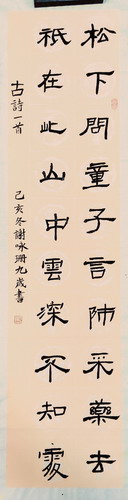 松下問童子言师采藥去
祇在此山中雲深不知處
古詩一首
己亥冬謝咏珊九歲書